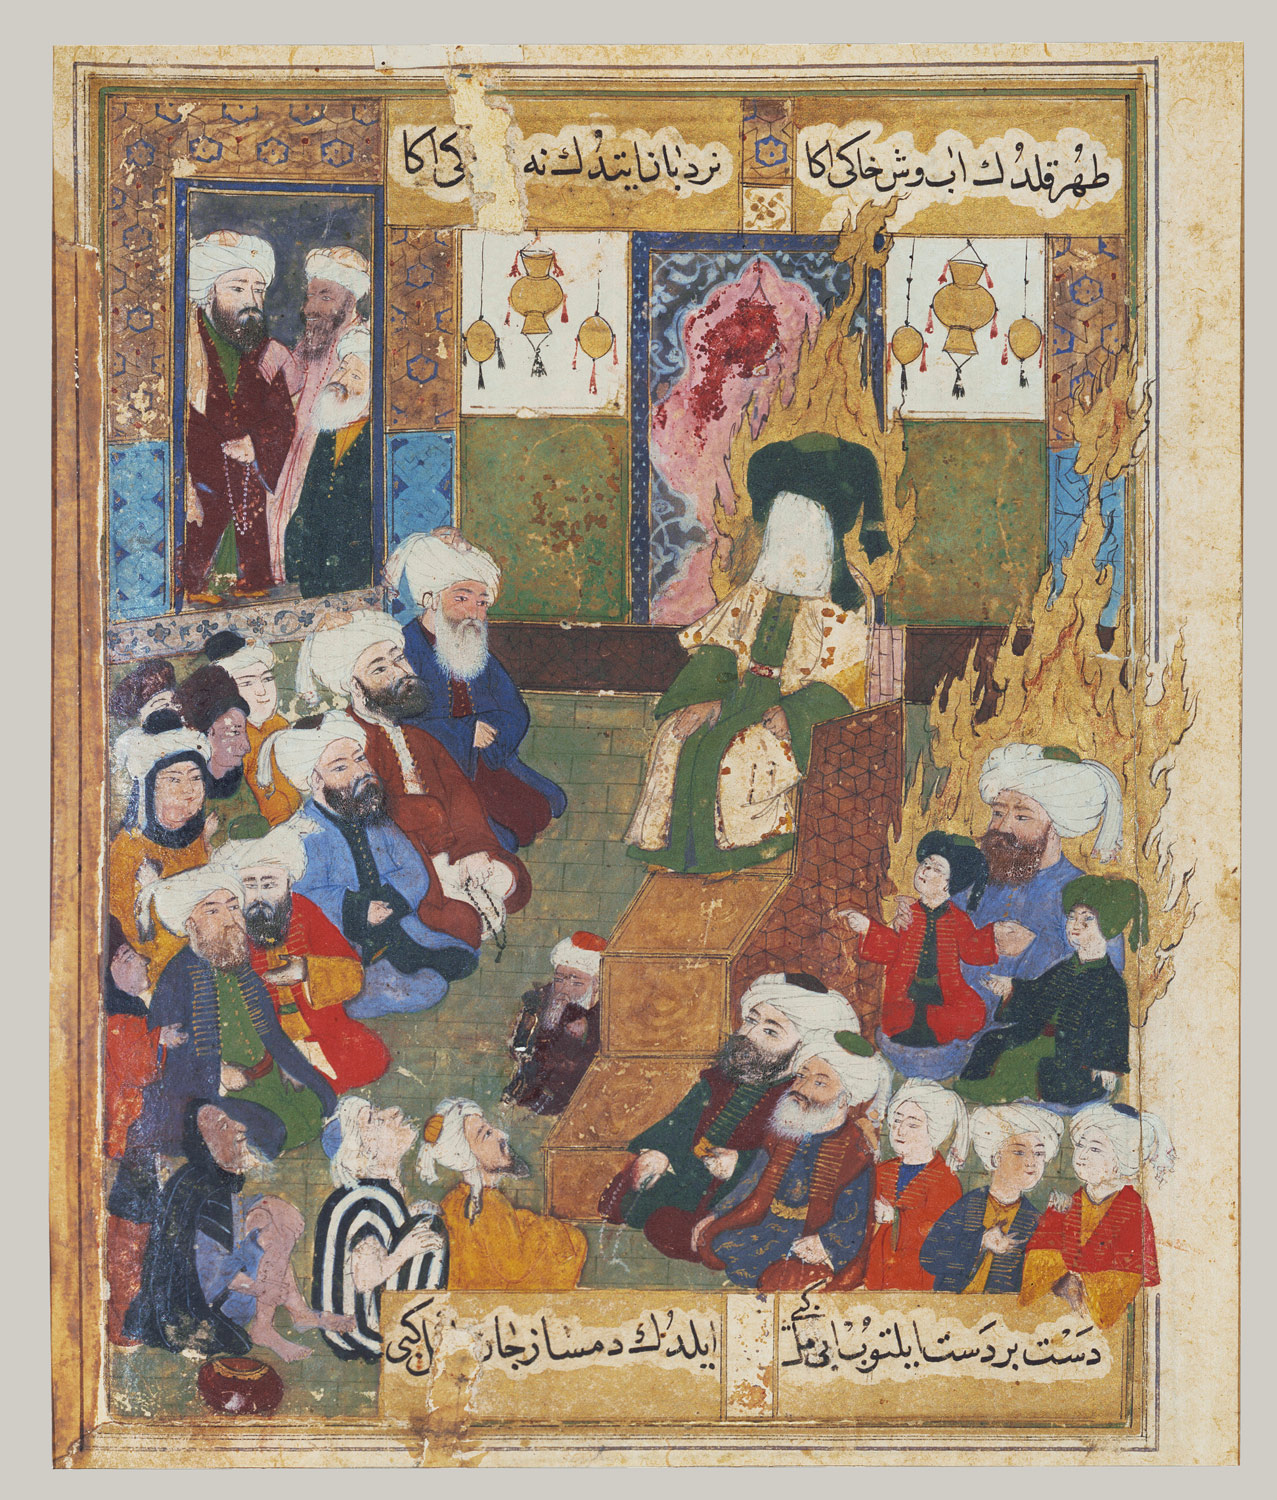 طهُر قلدُك اب وش خاكى اكا نردبان ايتدُك نه كى اكا
دَست بر دَست ايلتوب انى كبى ايلدُك دمساز جان كبى